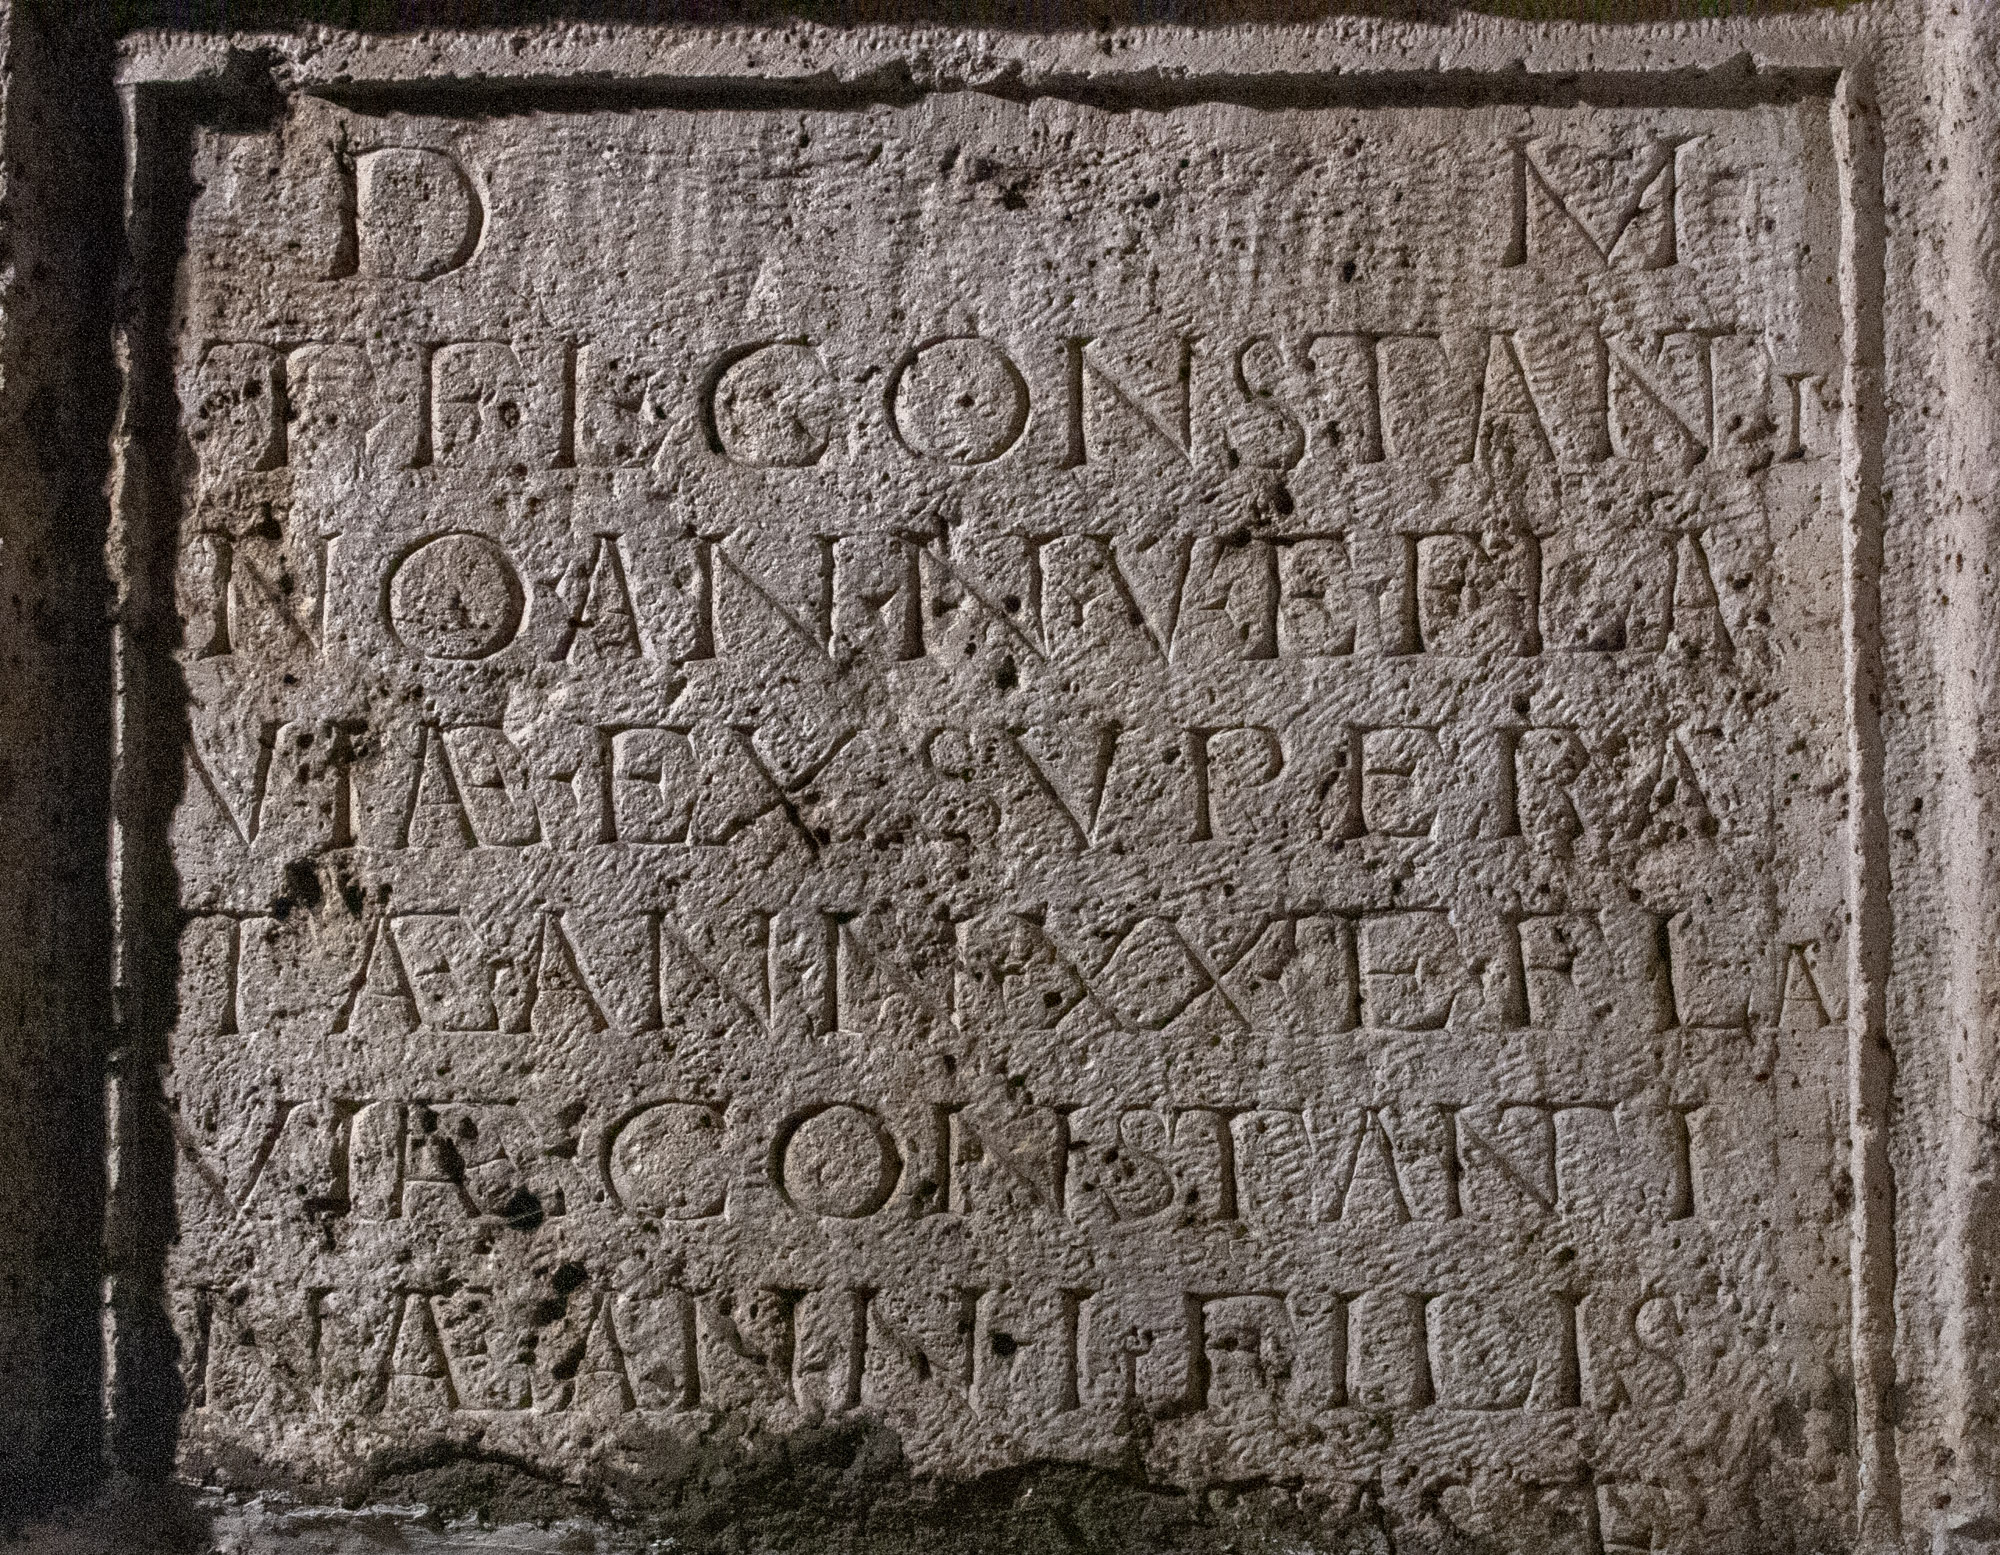 D M
T FL CONSTANTI
NO ANN V ET FLA
VIAE EXSVPERA
TAE ANN XX ET FLA
VIAE CONSTANTI
NAE ANN FILIS